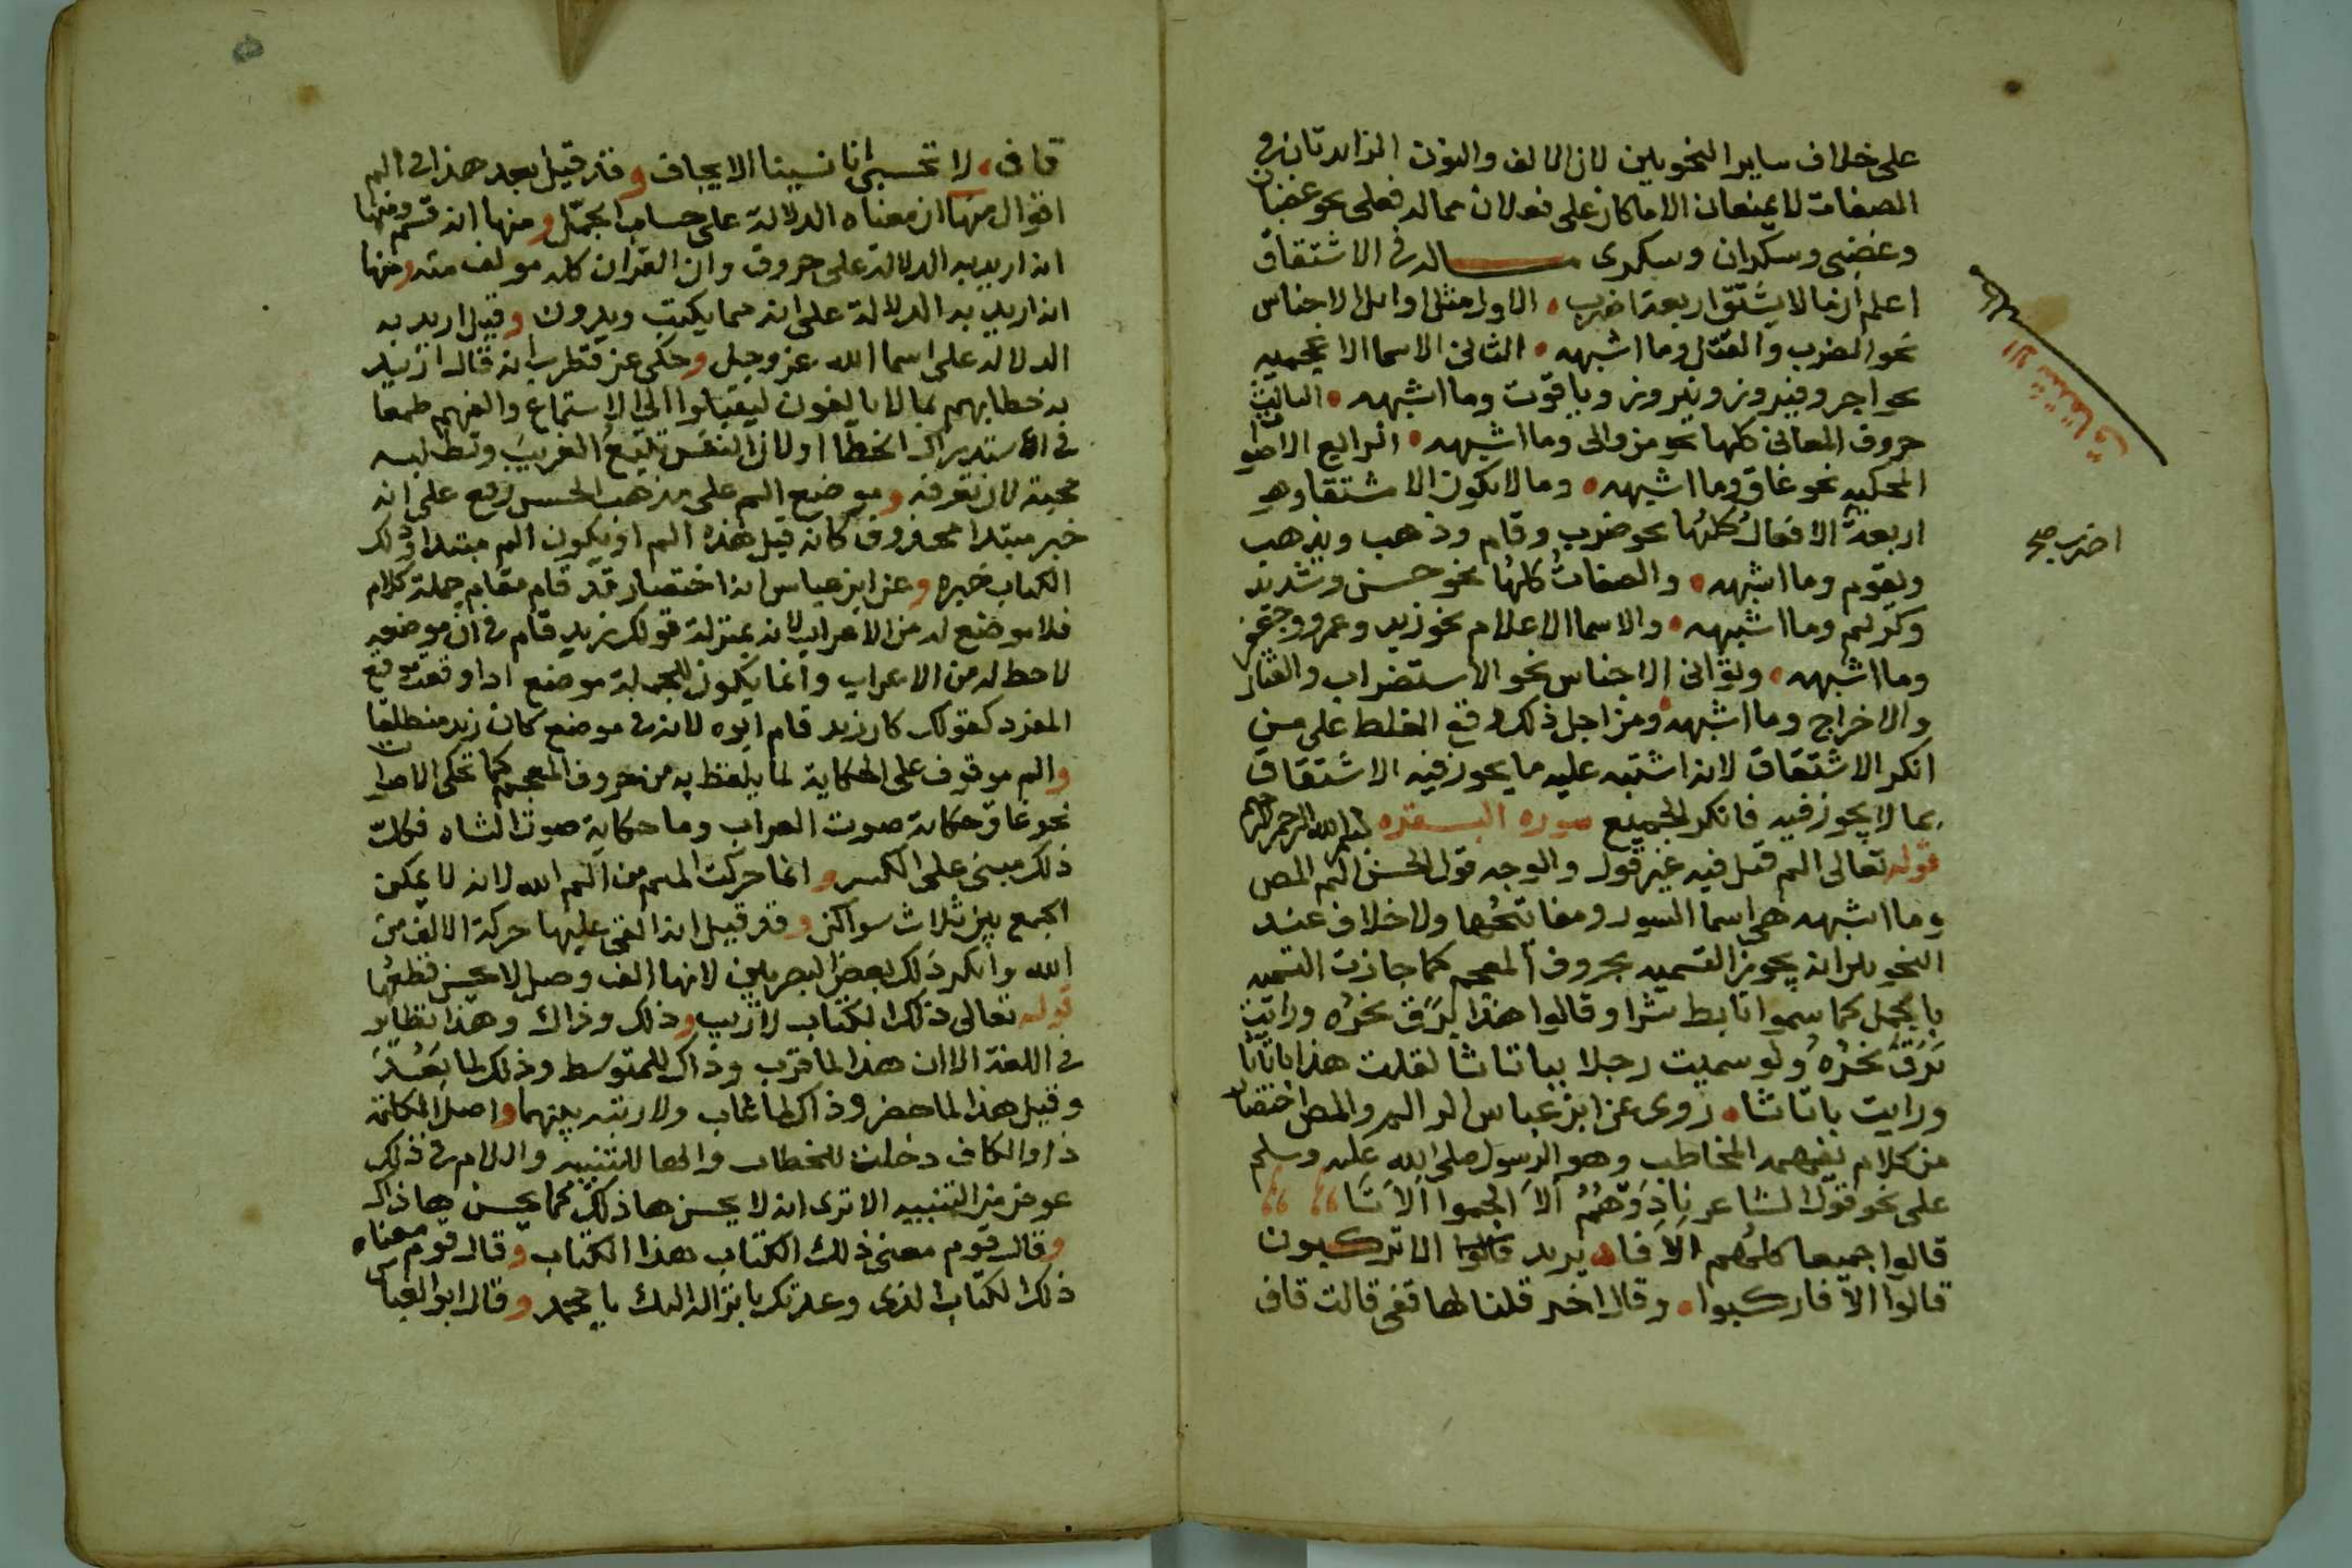 على خلاف ساير النحويين لان الالف والنون الزايدتان في
الصفات لا يمنعان الا ما كان على فعلان مما له فعلى نحو غضبان
وغضبى وسكران وسكرى مسالة في الاشتقاق
اعلم ان ما لا يشتق اربعة اضرب • الاول مثل اوايل الاجناس
نحو الضرب والقتل وما اشبهه • الثاني الاسما الاعجميه
نحو اجر وفيروز ونيروز وياقوت وما اشبهه • الثالث
حروف المعاني كلها نحو من والى وما اشبهه • الرابع الاصوات
المحكيه نحو غاق وما اشبهه • وما لا يكون الا مشتقا وهو
اربعة الافعال كلها نحو ضرب وقام وذهب ويذهب
ويقوم وما اشبهه • والصفات كلها نحو حسن وشديد
وكريم وما اشبهه • والاسما الاعلام نحو زيد وعمرو وجعفر
وما اشبهه • وثواني الاجناس نحو الاستضراب والقتال
والاخراج وما اشبهه ومن اجل ذلك وقع الغلط على من
انكر الاشتقاق لانه اشتبه عليه ما يجوز فيه الاشتقاق
بما لا يجوز فيه فانكر الجميع سورة البقره بسم الله الرحمن الرحيم
قوله تعالى الم قيل فيه غير قول والوجه قول الحسن الم المص
وما اشبهه هي اسما السور ومفاتحها ولا خلاف عند
النحويين انه يجوز التسميه بحروف المعجم كما جازت التسميه
بالجمل كما سموا تابط شرا وقالوا هذا برق نحره ورايت
برق نحره ولو سميت رجلا ببا تا ثا لقلت هذا باتاثا
ورايت باتاثا • روى عن ابن عباس الر الم والمص اختصار
من كلام يفهمه المخاطب وهو الرسول صلى الله عليه وسلم
على نحو قول الشاعر نادوهم الا الجموا الا تا
قالوا جميعا كلهم الا فا • يريد قالوا الا تركبون
قالوا الا فاركبوا • وقال اخر قلنا لها قفي قالت قاف
الاشتقاق
اضرب صح
قاف • لا تحسبي انا نسينا الايجاف وقد قيل بعد هذا في الم
اقوال منها ان معناه الدلالة على حساب الجمل ومنها انه قسم ومنها
انه اريد به الدلالة على حروف وان القران كله مولف منه ومنها
انه اريد به الدلالة على انه مما يكتب ويدون وقيل اريد به
الدلاله على اسما الله عز وجل وحكى عن قطرب انه قال اريد
به خطابهم بما لا يالفون ليقبلوا الى الاستماع والفهم طمعا
في الاستدراك الخطا او لان النفس تتبع الغريب وتطلبه
محبة لان تعرفه وموضع الم على مذهب الحسن رفع على انه
خبر مبتدا محذوف كانه قيل هذه الم او يكون الم مبتدا وذلك
الكتاب خبره وعن ابن عباس انه اختصار قد قام مقام جملة كلام
فلا موضع له من الاعراب لانه بمنزلة قولك زيد قام في ان موضعه
لا حظ له من الاعراب وانما يكون للجملة موضع اذا وقعت موقع
المفرد كقولك كان زيد قام ابوه لانه في موضع كان زيد منطلقا
والم موقوف على الحكاية لما يلفظ به من حروف المعجم كما تحكى الاصوات
نحو غاق حكاية صوت الغراب وما حكاية صوت الشاه فكل
ذلك مبني على الكسر وانما حركت الميم من الم الله لانه لا يمكن
الجمع بين ثلاث سواكن وقد قيل انه القى عليها حركة الالف من
الله وانكر ذلك بعض البصريين لانها الف وصل لا يحسن قطعها
قوله تعالى ذلك الكتاب لا ريب وذلك وذاك وهذا نظاير
في اللغة الا ان هذا لما قرب وذاك للمتوسط وذلك لما بعد
وقيل هذا لما حضر وذاك لما غاب ولا رتبه بينهما واصل الكلمة
ذا والكاف دخلت للخطاب والها للتنبيه واللام في ذلك
عوض من التنبيه الا ترى انه لا يحسن هاذلك كما يحسن هاذاك
وقال قوم معنى ذلك الكتاب هذا الكتاب وقال قوم معناه
ذلك الكتاب الذي وعدتك بانزاله اليك يا محمد وقال ابو العباس